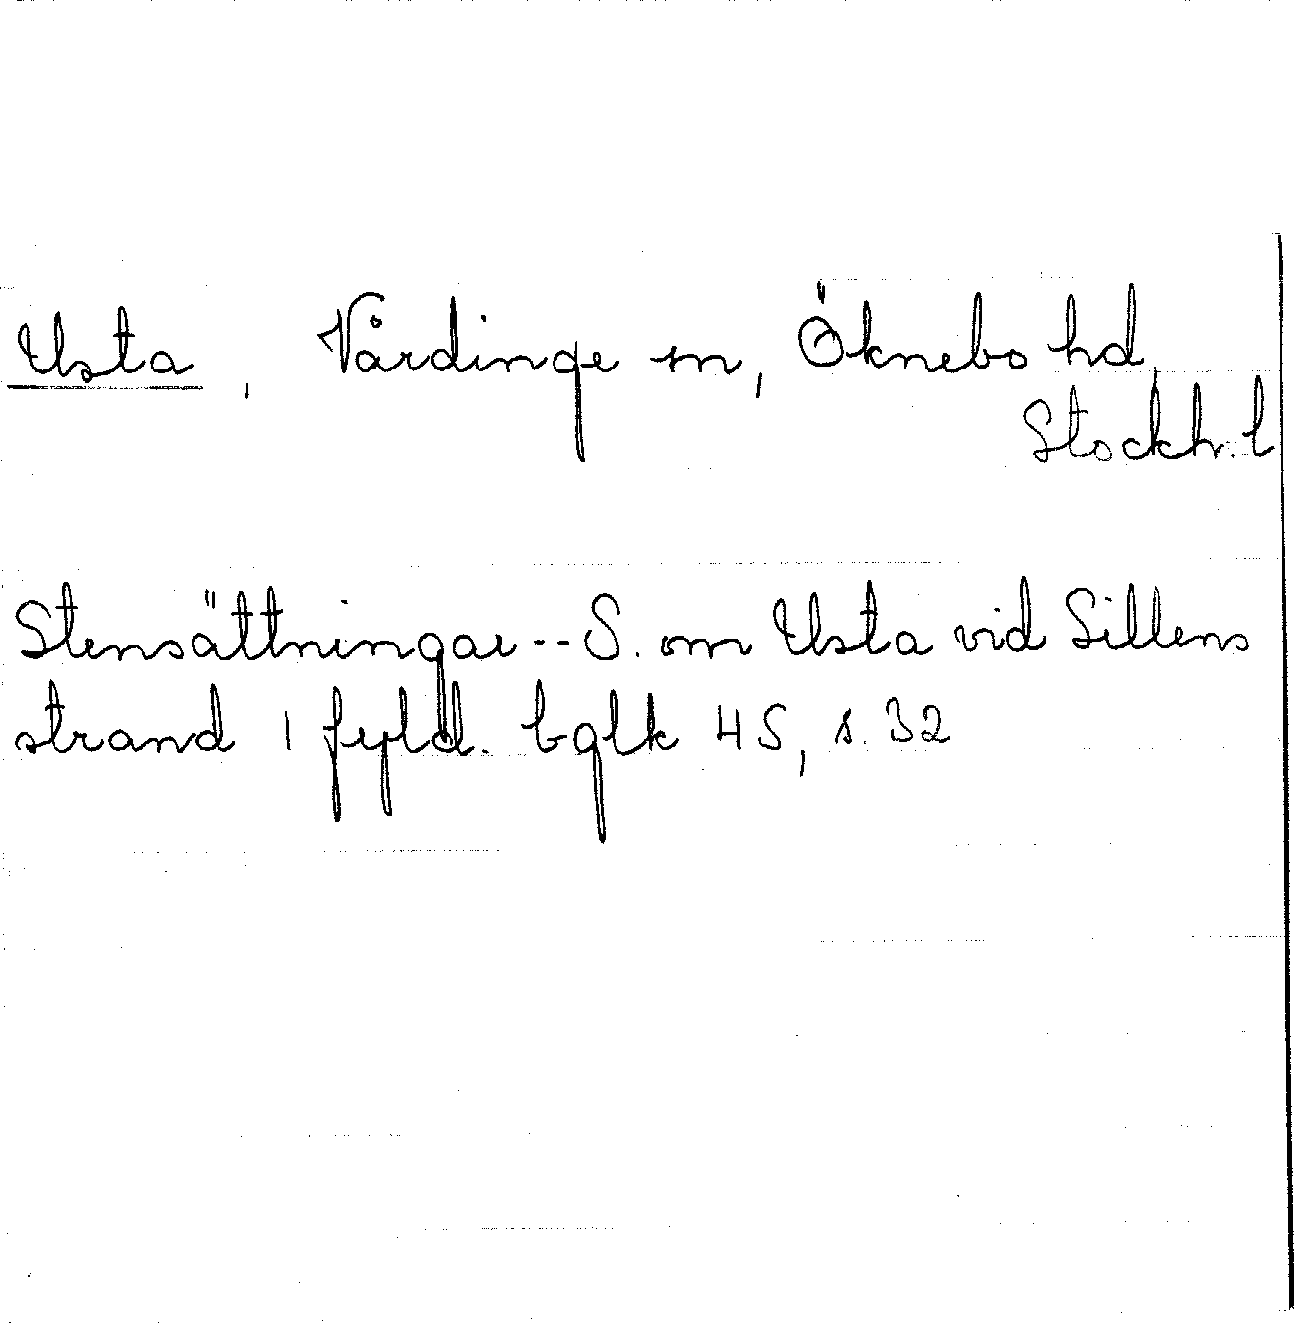 Usta, Vårdinge sn, Öknebo hd,
Stockh. l
Stensättningar -- S. om Usta vid Sillens
strand 1 fyld. bglk H5, s. 32